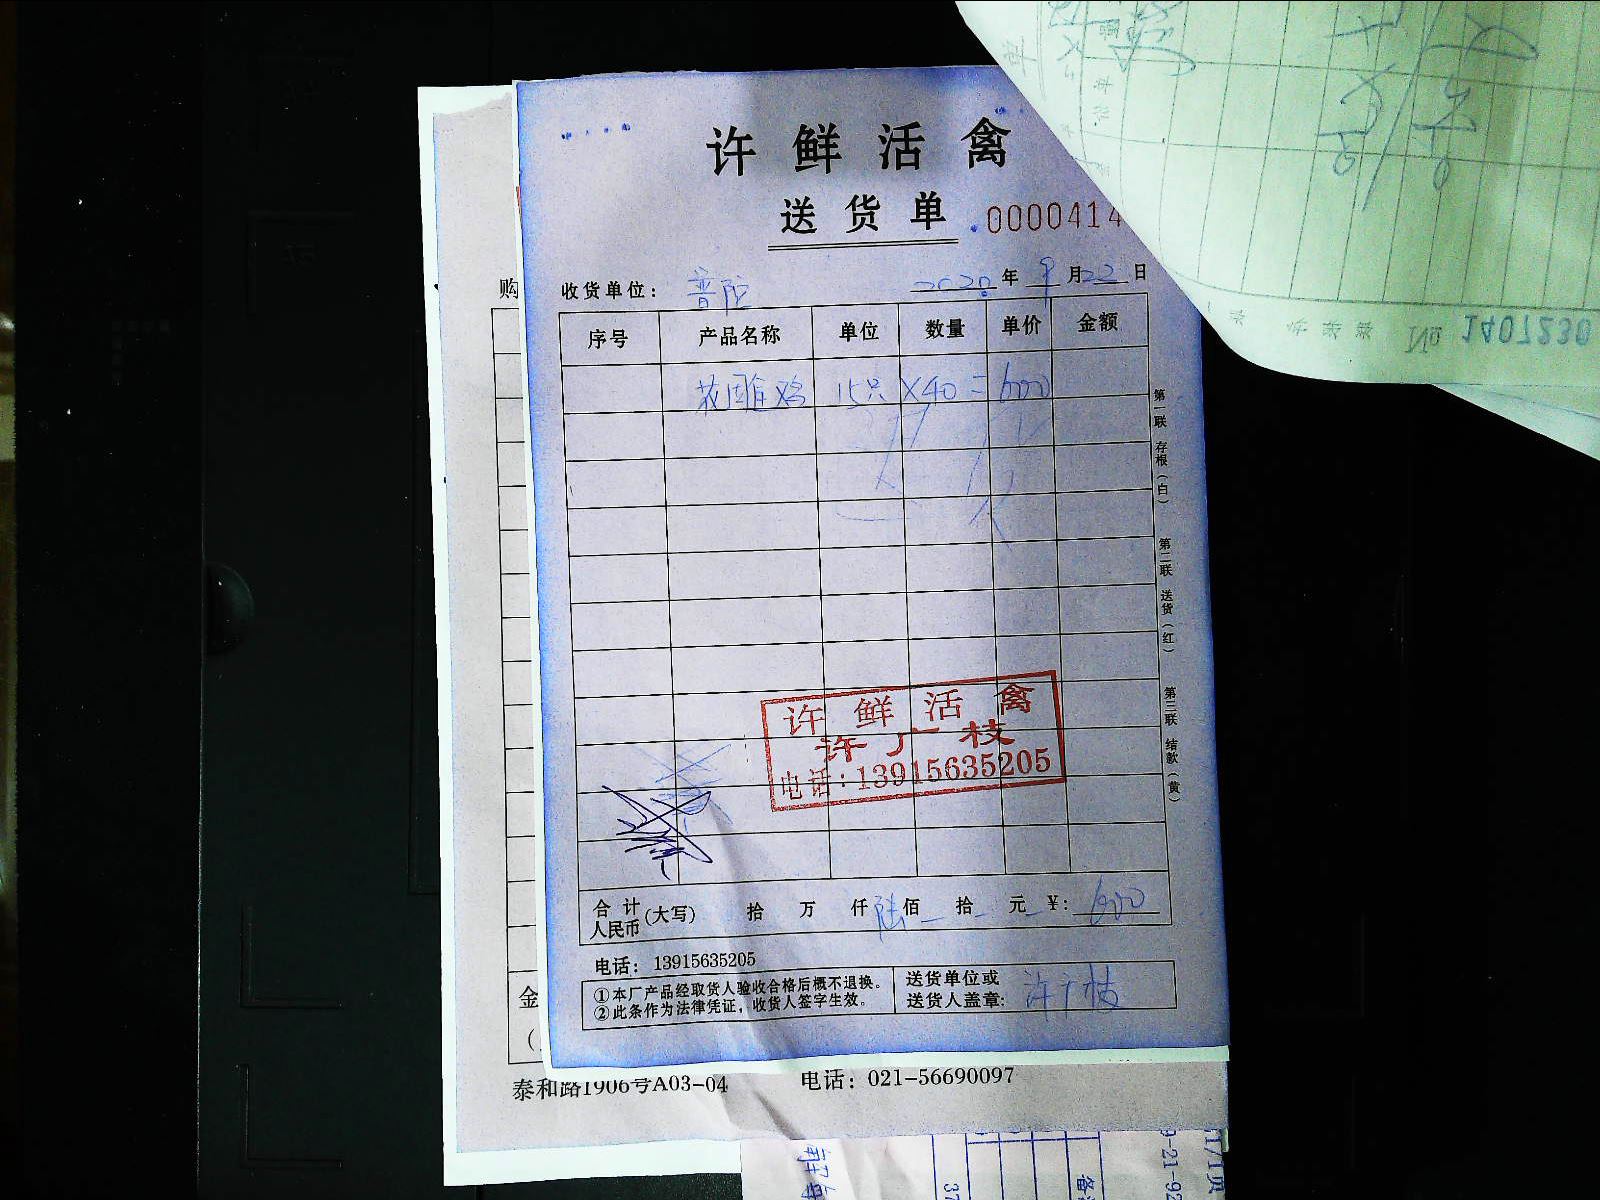 许鲜活禽
送货单
0000414
收货单位：普陀 2020年9月22日
序号 产品名称 单位 数量 单价 金额
花雕鸡 15只 X40=600
第一联 存根（白） 第二联 送货（红） 第三联 结款（黄）
许鲜活禽
许广枝
电话：13915635205
合计人民币（大写） 拾 万 仟 陆佰 拾 元 ¥：600
电话：13915635205
①本厂产品经取货人验收合格后概不退换。
②此条作为法律凭证，收货人签字生效。
送货单位或
送货人盖章：许广枝
购
金
泰和路1906号A03-04 电话：021-56690097
No 1407230
9-21-92
1/1页
37